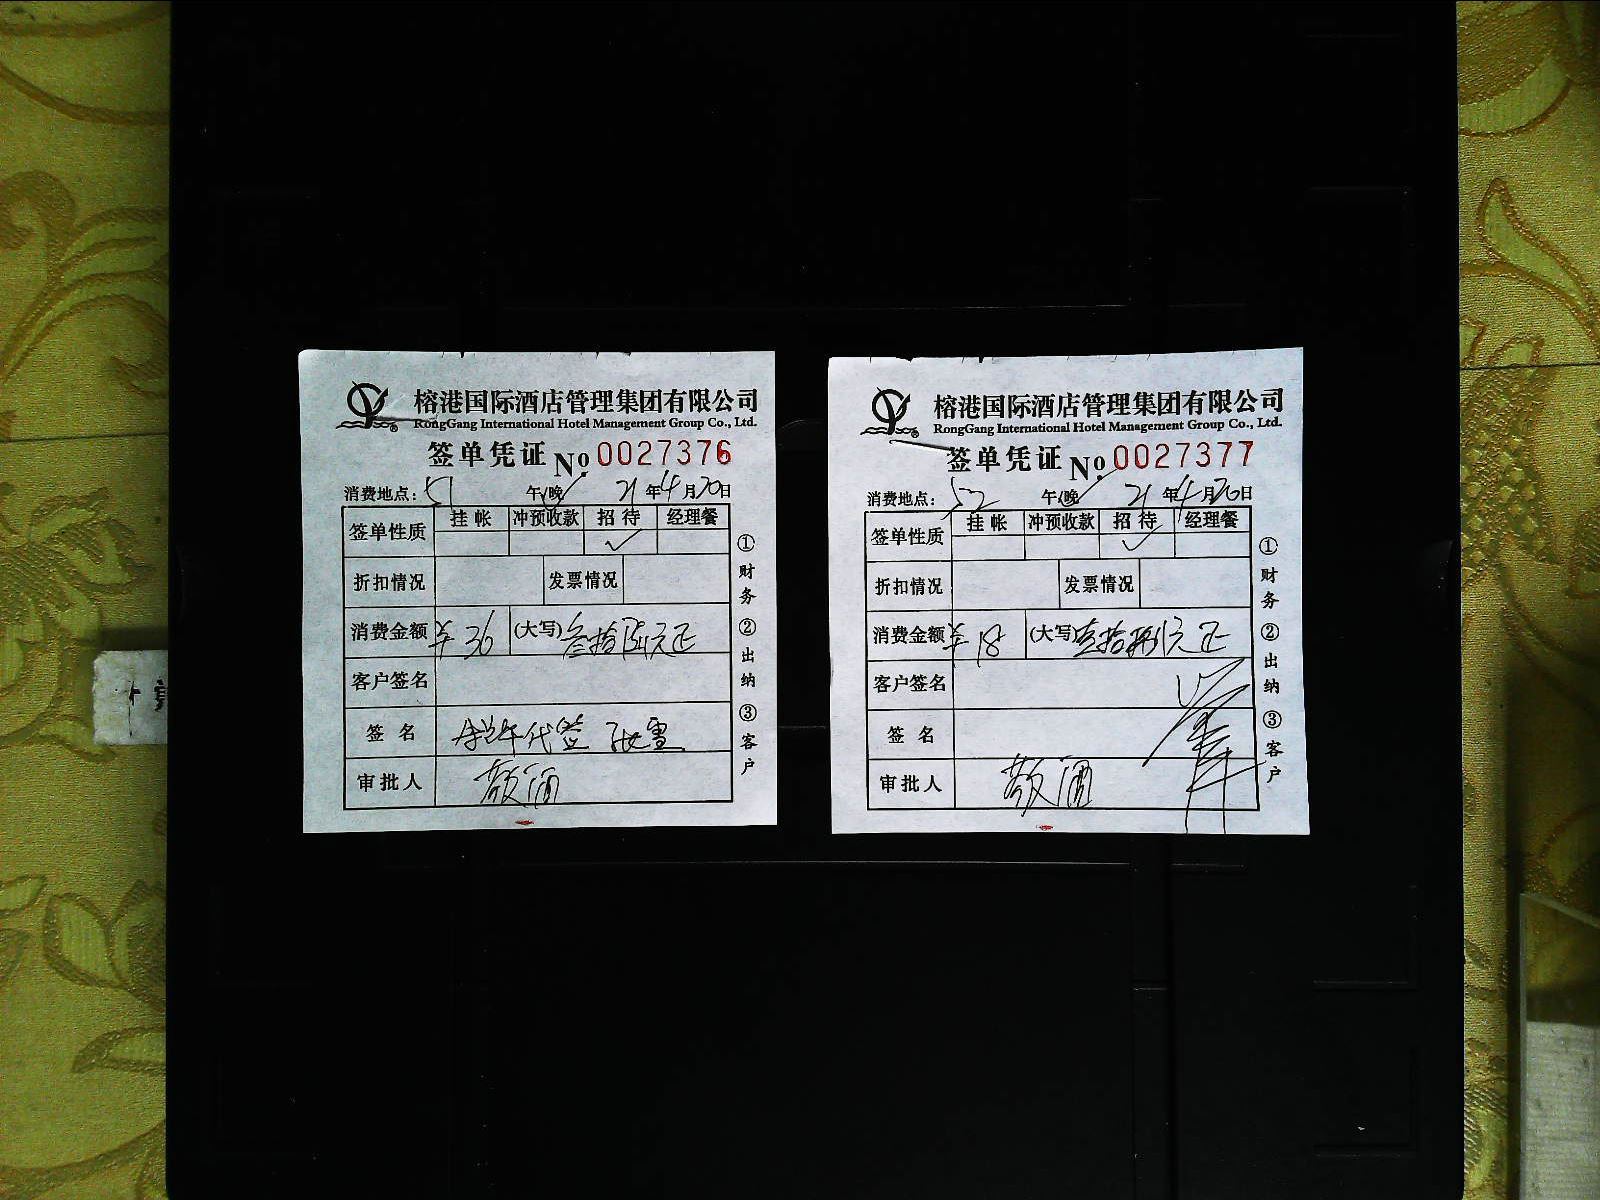 榕港国际酒店管理集团有限公司
RongGang International Hotel Management Group Co., Ltd.
签单凭证 No. 0027376
消费地点: 51 午/晚 21年4月20日
签单性质 挂帐 冲预收款 招待 经理餐
✓
折扣情况 发票情况
消费金额 ¥36 (大写) 叁拾陆元正
客户签名
签名 代签
审批人 敬酒
①财务 ②出纳 ③客户
榕港国际酒店管理集团有限公司
RongGang International Hotel Management Group Co., Ltd.
签单凭证 No. 0027377
消费地点: 52 午/晚 21年4月20日
签单性质 挂帐 冲预收款 招待 经理餐
✓
折扣情况 发票情况
消费金额 ¥18 (大写) 壹拾捌元正
客户签名
签名
审批人 敬酒
①财务 ②出纳 ③客户